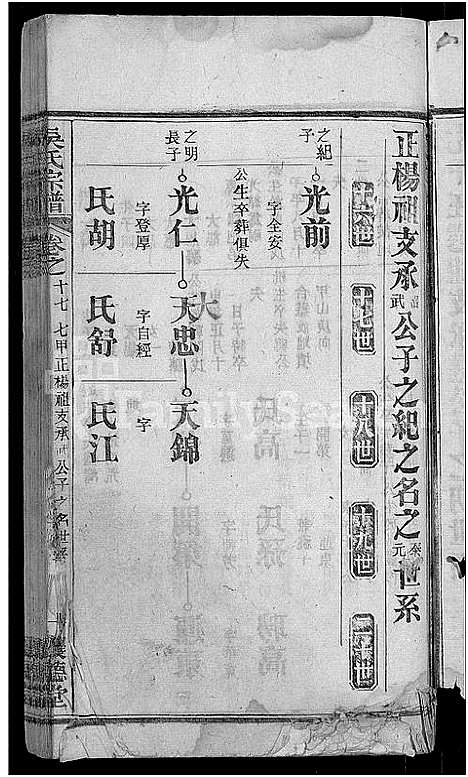 正楊祖支承武公子之紀之名之奉元世系
十六世
十七世
十八世
十九世
二十世
之紀子
光前
字全安
公生卒葬俱失
之明長子
光仁
天忠
天錦
字登厚
字自經
字
氏胡
氏舒
氏江
吳氏宗譜
卷之十七 七甲正楊祖支承武公子之名世系
德堂
FamilySearch